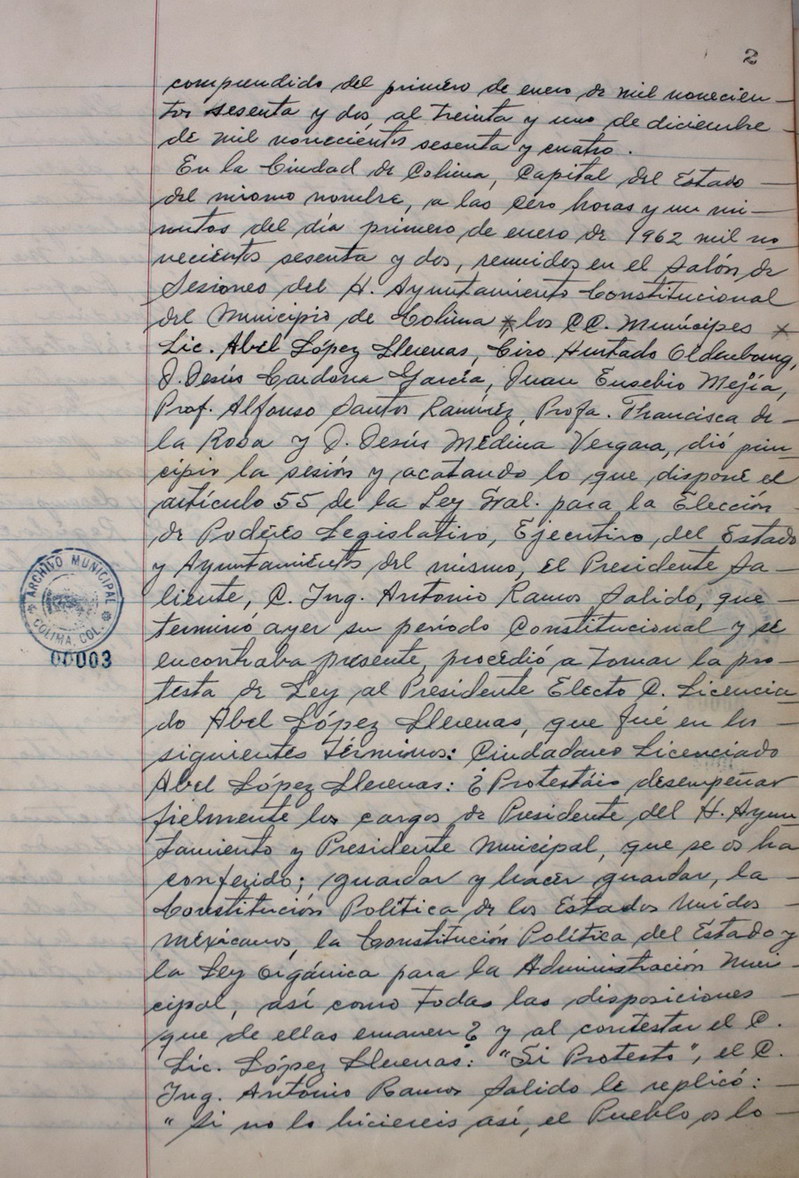 2
comprendido del primero de enero de mil novecien-
tos sesenta y dos, al treinta y uno de diciembre
de mil novecientos sesenta y cuatro.
En la Ciudad de Colima, Capital del Estado
del mismo nombre, a las cero horas y un mi-
nutos del día primero de enero de 1962 mil no
vecientos sesenta y dos, reunidos en el Salón de
Sesiones del H. Ayuntamiento Constitucional
del Municipio de Colima * los CC. Munícipes *
Lic. Abel López Llerenas, Ciro Hurtado Oldenbourg,
J. Jesús Cardona García, Juan Eusebio Mejía,
Prof. Alfonso Santos Ramírez, Profa. Francisca de
la Rosa y J. Jesús Medina Vergara, dió prin-
cipio la sesión y acatando lo que dispone el
artículo 55 de la Ley Gral. para la Elección
de Poderes Legislativo, Ejecutivo, del Estado
y Ayuntamientos del mismo, el Presidente Sa-
liente, C. Ing. Antonio Ramos Salido, que
terminó ayer su período Constitucional y se
encontraba presente, procedió a tomar la pro-
testa de Ley al Presidente Electo C. Licencia
do Abel López Llerenas, que fué en los
siguientes términos: Ciudadano Licenciado
Abel López Llerenas: ¿Protestáis desempeñar
fielmente los cargos de Presidente del H. Ayun
tamiento y Presidente Municipal, que se os ha
conferido; guardar y hacer guardar, la
Constitución Política de los Estados Unidos
Mexicanos, la Constitución Política del Estado y
la Ley Orgánica para la Administración Muni-
cipal, así como todas las disposiciones
que de ellas emanen? y al contestar el C.
Lic. López Llerenas: "Si Protesto", el C.
Ing. Antonio Ramos Salido le replicó:
"Si no lo hiciereis así, el Pueblo os lo
ARCHIVO MUNICIPAL
COLIMA, COL.
00003